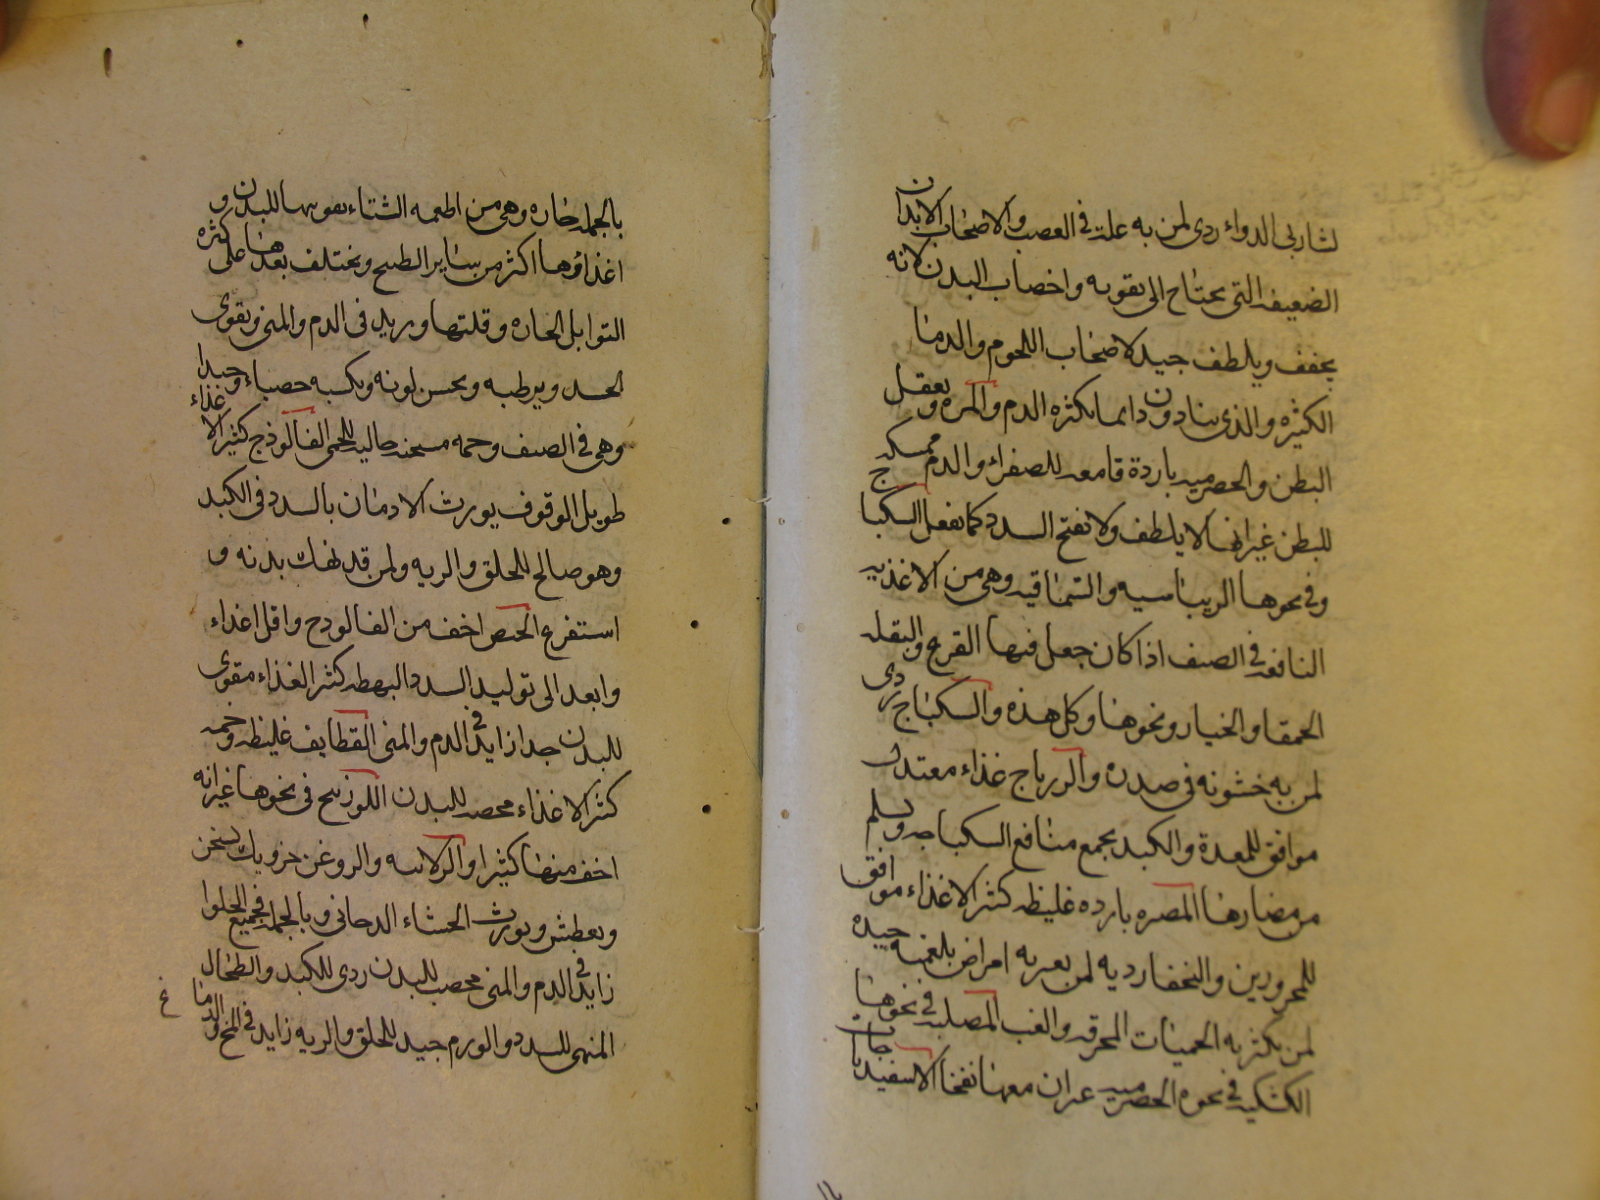 لشاربى الدواء ردى لمن به علة فى العصب والاصحاب الابدان
الضعيفه التى يحتاج الى تقويه واخصاب البدن لانه
يجفف ويلطف جيد لاصحاب اللحوم والدما
الكثيره والذى يتادون دايما بكثره الدم والمره ويعقل
البطن والحصرميه باردة قامعه للصفراء والدم ممسكه
للبطن غير انها لا يلطف ولا تفتح السدد كما تفعل السكبا ج
وفى نحوها الريباسيه والسماقيه وهى من الاغذيه
النافعه فى الصيف اذا كان جعل فيها القرع والبقله
الحمقا والخيار ونحوها وكل هذه والسكباج ردى
لمن به خشونه فى صدره والزرباج غذاء معتدل
موافق للمعدة والكبد يجمع منافع السكباجه ويسلم
من مضارها المصره بارده غليظه كثير الاغذاء موافق
للمحرورين رديه لمن يعتريه امراض بلغميه جيده
لمن يكثر به الحميات المحرقه والغب المصليه فى نحوها
الكشكيه فى نحوه الحصرميه غير ان معها نفخا الاسفيدباجات
بالجمله حاره وهى من اطعمه الشتاء تقويتها للبدن و
اغذاؤها اكثر من ساير الطبيخ ويختلف بعدها على كثره
التوابل الحاره وقلتها ويزيد فى الدم والمنى ويقوى
الجسد ويرطبه ويحسن لونه ويكسبه خصبا جيدا
وهى فى الصيف وخمه مسخنه جالبه للحمى الفالوذج كثير الاغذاء
طويل الوقوف يورث الادمان بالسدد فى الكبد
وهو صالح للحلق والريه ولمن قد نهك بدنه و
استفرغ الخبيص اخف من الفالودج واقل اغذاء
وابعد الى توليد السدد البهطه كثير الغذاء مقوى
للبدن جدا زايد فى الدم والمنى القطايف غليظه وخمه
كثير الاغذاء مخصب للبدن اللوزينج فى نحوها غير انه
اخف منها كثيرا والزلابيه يسخن
ويعطش ويورث الجشاء الدخانى وبالجمله فجميع الحلوا
زايد فى الدم والمنى مخصب للبدن ردى للكبد والطحال
المنهى للسدد والورم جيد للحلق والريه زايد فى المخ والدما غ